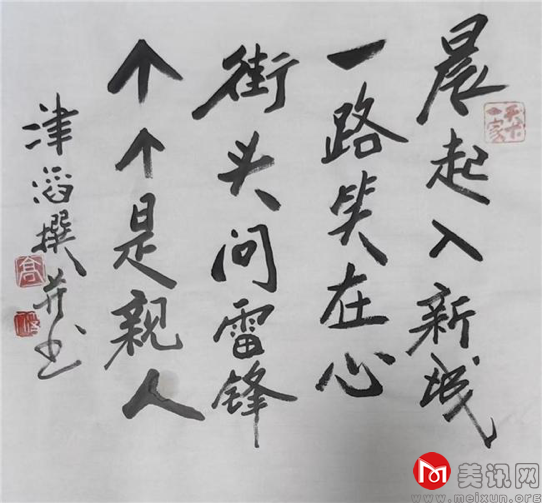 晨起入新城
一路笑在心
街头问雷锋
个个是親人
津滔撰并书
美讯网
www.meixun.org